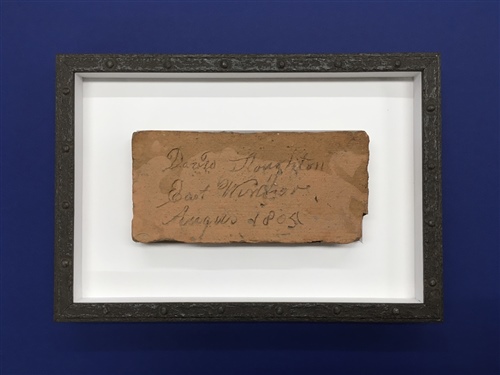 David Stoughton
East Windsor
August 1805